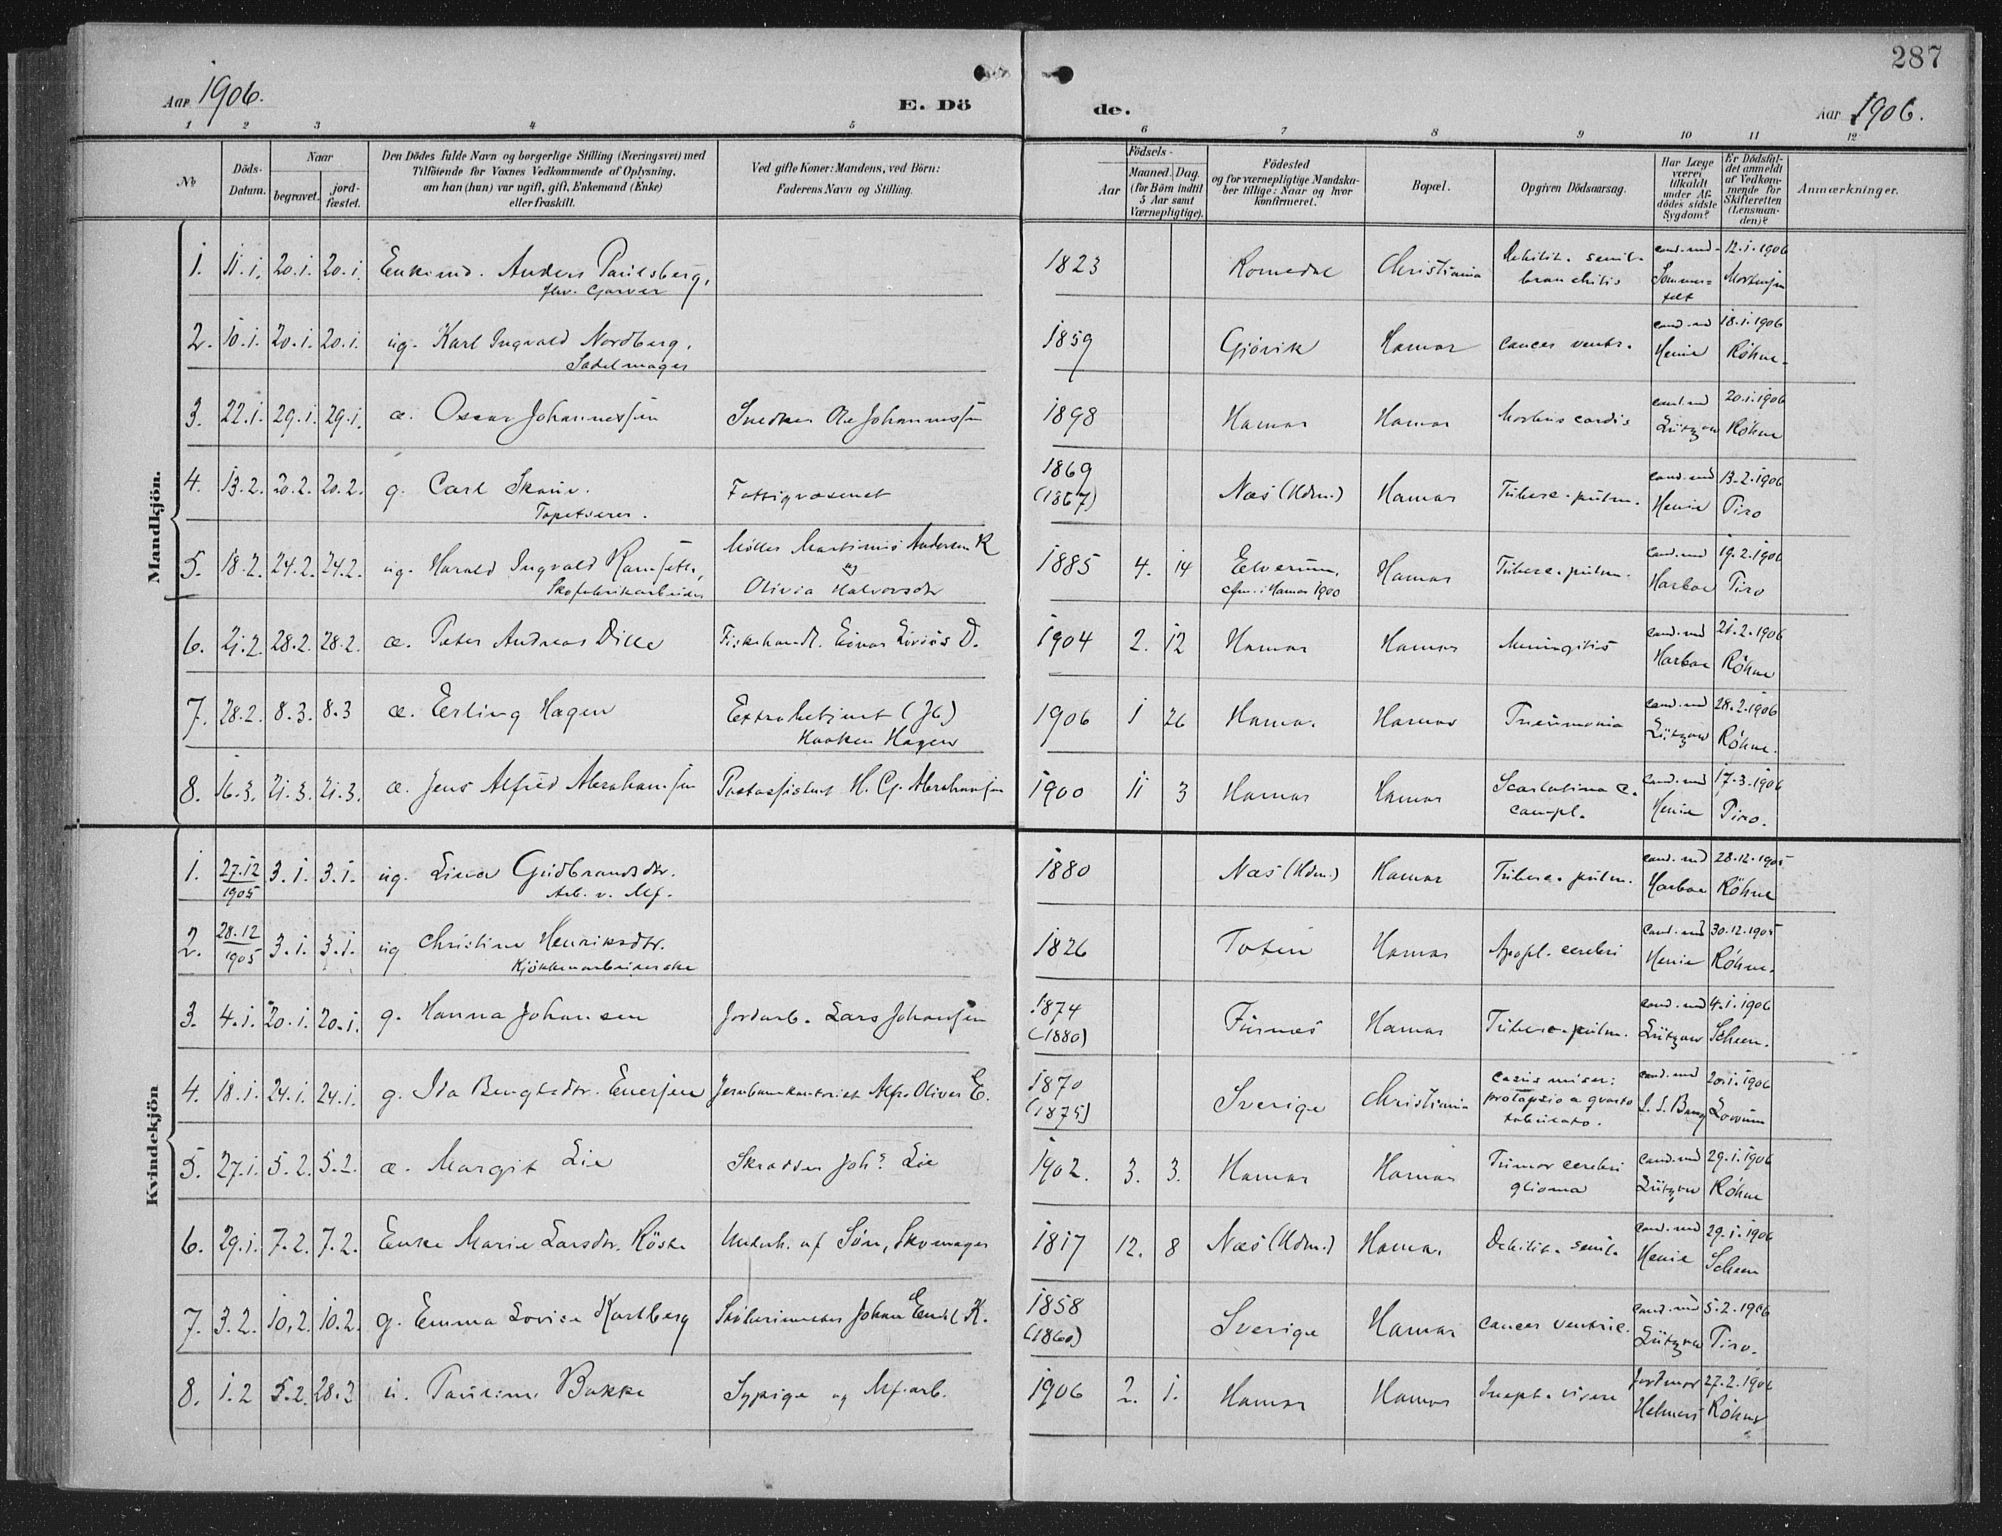 287
Aar 1906.
E. Dö
de.
Aar 1906.
1 2 3 4 5 6 7 8 9 10 11 12
No
Döds-Datum.
Naar
begravet.
jord-fæstet.
Den Dödes fulde Navn og borgerlige Stilling (Næringsvei) med
Tilföiende for Voxnes Vedkommende af Oplysning,
om han (hun) var ugift, gift, Enkemand (Enke)
eller fraskilt.
Ved gifte Koner: Mandens, ved Börn:
Faderens Navn og Stilling.
Födsels-
Aar
Maaned. Dag.
(for Börn indtil
5 Aar samt
Værnepligtige).
Födested
og for værnepligtige Mandska-
ber tillige: Naar og hvor
konfirmeret.
Bopæl.
Opgiven Dödsaarsag.
Har Læge
været
tilkaldt
under Af-
dödes sidste
Sygdom?
Er Dödsfal-
det anmeldt
af Vedkom-
mende for
Skifteretten
(Lensman-
den)?
Anmærkninger.
Mandkjön.
1. 11.1. 20.1. 20.1. Enkemd. Anders Paulsberg, 1823 Romedal Christiania Debilit. senil. cand. med. 12.1.1906
fhv. Garver bronchitis Sommerfelt Mortensen
2. 10.1. 20.1. 20.1. ug. Karl Ingvald Nordberg, 1859 Gjövik Hamar cancer ventr. cand. med 18.1.1906
Sadelmager Henie Röhne.
3. 22.1. 29.1. 29.1. æ. Oscar Johannessen Snedker Ole Johannessen 1898 Hamar Hamar Morbus cordis cand. med 20.1.1906
Lützow Röhne
4. 13.2. 20.2. 20.2. g. Carl Skaue. Fattigvæsenet 1869 (1867) Næs (Hdm.) Hamar Tuberc. pulm. cand. med 13.2.1906
Tapetserer. Henie Tiro
5. 18.2. 24.2. 24.2. ug. Harald Ingvald Ramseter, Möller Martinius Andersen R 1885 4. 14 Elverum, Hamar Tuberc. pulm. cand. med 19.2.1906
Skofabrikarbeider og Olivia Halvorsdtr cfm. i Hamar 1900 Harboe Tiro
6. 21.2. 28.2. 28.2. æ. Peter Andreas Dille Fiskehandl. Einar Livius D. 1904 2. 12 Hamar Hamar Meningitis cand. med 21.2.1906
Harboe Röhne
7. 28.2. 8.3. 8.3 æ. Erling Hagen Extrabetjent (Jb) 1906 1 26 Hamar Hamar Pneumonia cand. med 28.2.1906
Haaken Hagen Lützow Röhne.
8. 16.3. 21.3. 21.3. æ. Jens Alfred Abrahamsen Postassistent H. C. Abrahamsen 1900 11 3 Hamar Hamar Scarlatina c. cand. med 17.3.1906
compl. Henie Tiro.
Kvindekjön
1. 27.12 1905 3.1. 3.1. ug. Lina Gudbrandsdtr. 1880 Næs (Hdm.) Hamar Tuberc. pulm. cand. med 28.12.1905
Arb. v. Mf. Harboe Röhne
2. 28.12 1905 3.1. 3.1. ug Christine Henriksdtr. 1826 Toten Hamar Apopl. cerebri cand. med 30.12.1905
Kjökkenarbeiderske Henie Röhne.
3. 4.1. 20.1. 20.1. g. Hanna Johansen Jordarb. Lars Johansen 1874 (1880) Furnes Hamar Tuberc. pulm. cand. med 4.1.1906
Lützow Scheen.
4. 18.1. 24.1. 24.1. g. Ida Bengtsdtr. Enersen Alfr. Oliver E. 1870 (1875) Sverige Christiania cand. med 20.1.1906
5. 27.1. 5.2. 5.2. æ. Margit Lie Skrædder Johs. Lie 1902. 3. 3. Hamar Hamar Tumor cerebri cand. med 29.1.1906
glioma Lützow Röhne
6. 29.1. 7.2. 7.2. Enke Marie Larsdtr. Röste Underh. af Sön, Skomager 1817 12. 8 Næs (Hdm.) Hamar Debilit. senil. cand. med 29.1.1906
Henie Scheen
7. 3.2. 10.2. 10.2. g. Emma Lovise Karlberg Johan Emil K. 1858 (1860) Sverige Hamar cancer ventric. cand. med 5.2.1906
Lützow Tiro.
8. 1.2 5.2. 28.2 u. Pauline Bakke Sypige og Mf. arb. 1906 2. 1. Hamar Hamar Jordmor 27.2.1906
Röhne